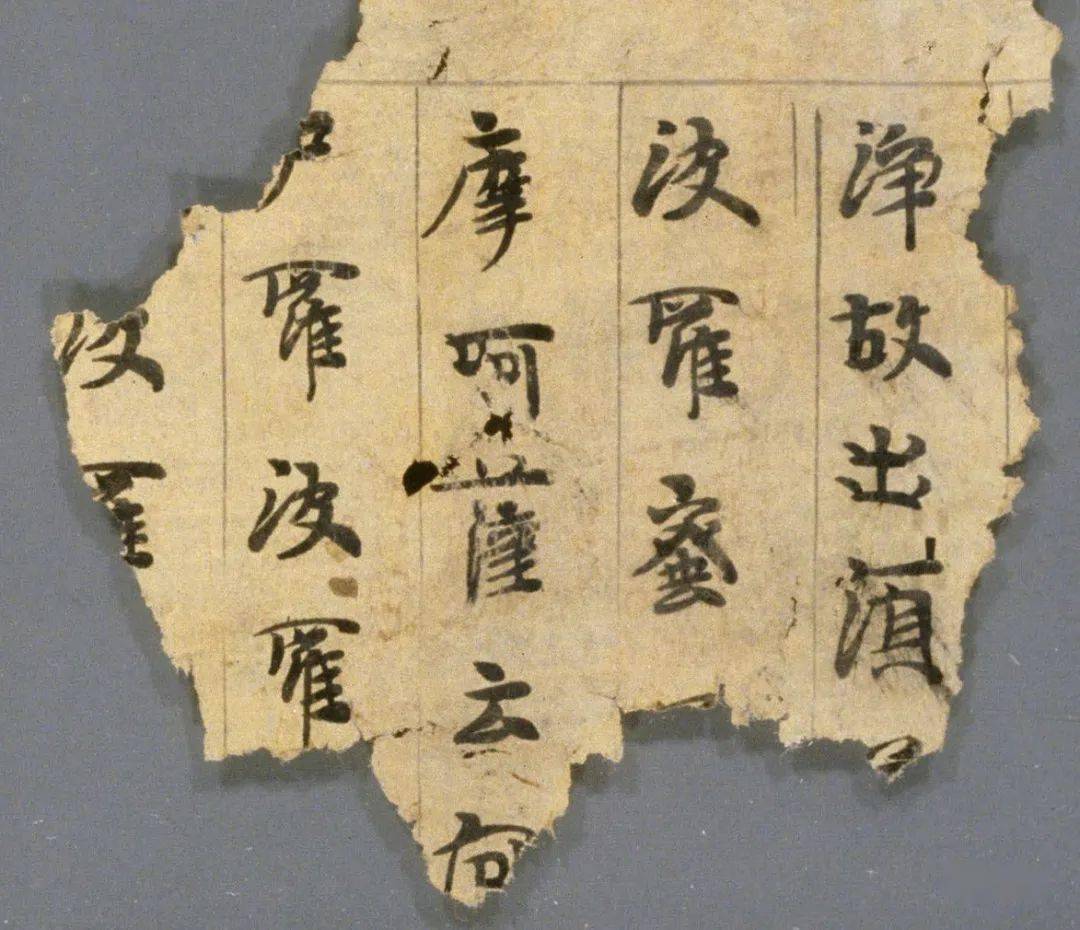 淨故出湏
波羅蜜
摩呵薩云何
尸羅波羅
波羅